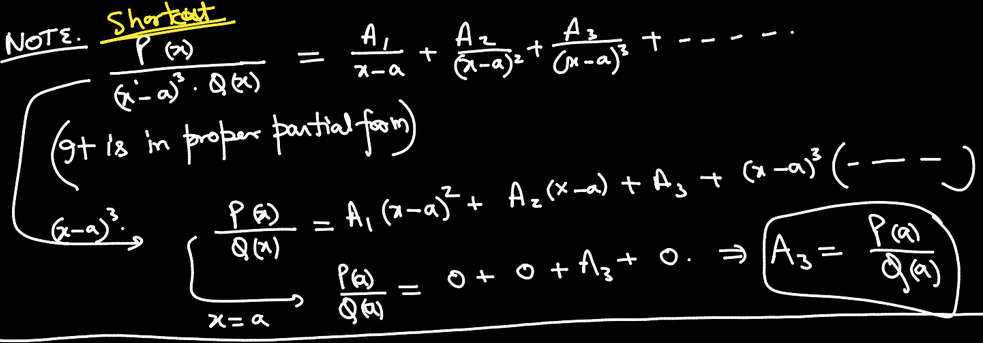 NOTE. Shortcut
P(x) / (x-a)³ · Q(x) = A₁ / x-a + A₂ / (x-a)² + A₃ / (x-a)³ + - - - - - .
(It is in proper partial form)
(x-a)³. → P(x) / Q(x) = A₁ (x-a)² + A₂ (x-a) + A₃ + (x-a)³ (- - - -)
x = a → P(a) / Q(a) = 0 + 0 + A₃ + 0. ⇒ A₃ = P(a) / Q(a)